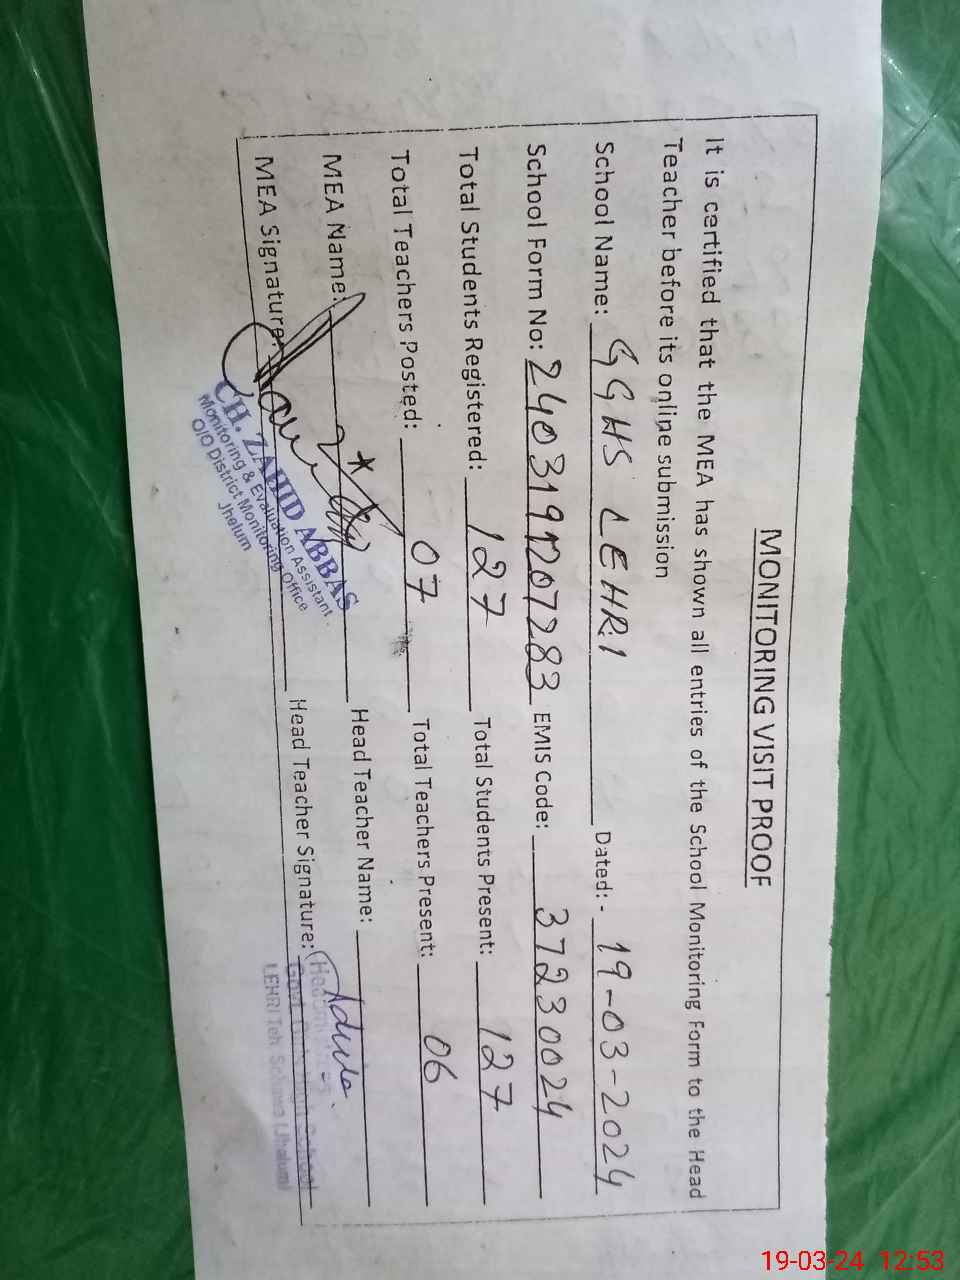 MONITORING VISIT PROOF
It is certified that the MEA has shown all entries of the School Monitoring Form to the Head
Teacher before its online submission
School Name: GGHS LEHRI Dated:- 19-03-2024
School Form No: 2403191207283 EMIS code: 37230024
Total Students Registered: 127 Total Students Present: 127
Total Teachers Posted: 07 Total Teachers Present: 06
MEA Name: Head Teacher Name:
MEA Signature: Head Teacher Signature:
CH. ZAHID ABBAS
Monitoring & Evaluation Assistant
O/O District Monitoring Office
Jhelum
Headmistress
Govt. Girls High School
LEHRI Teh Sohawa (Jhelum)
19-03-24 12:53